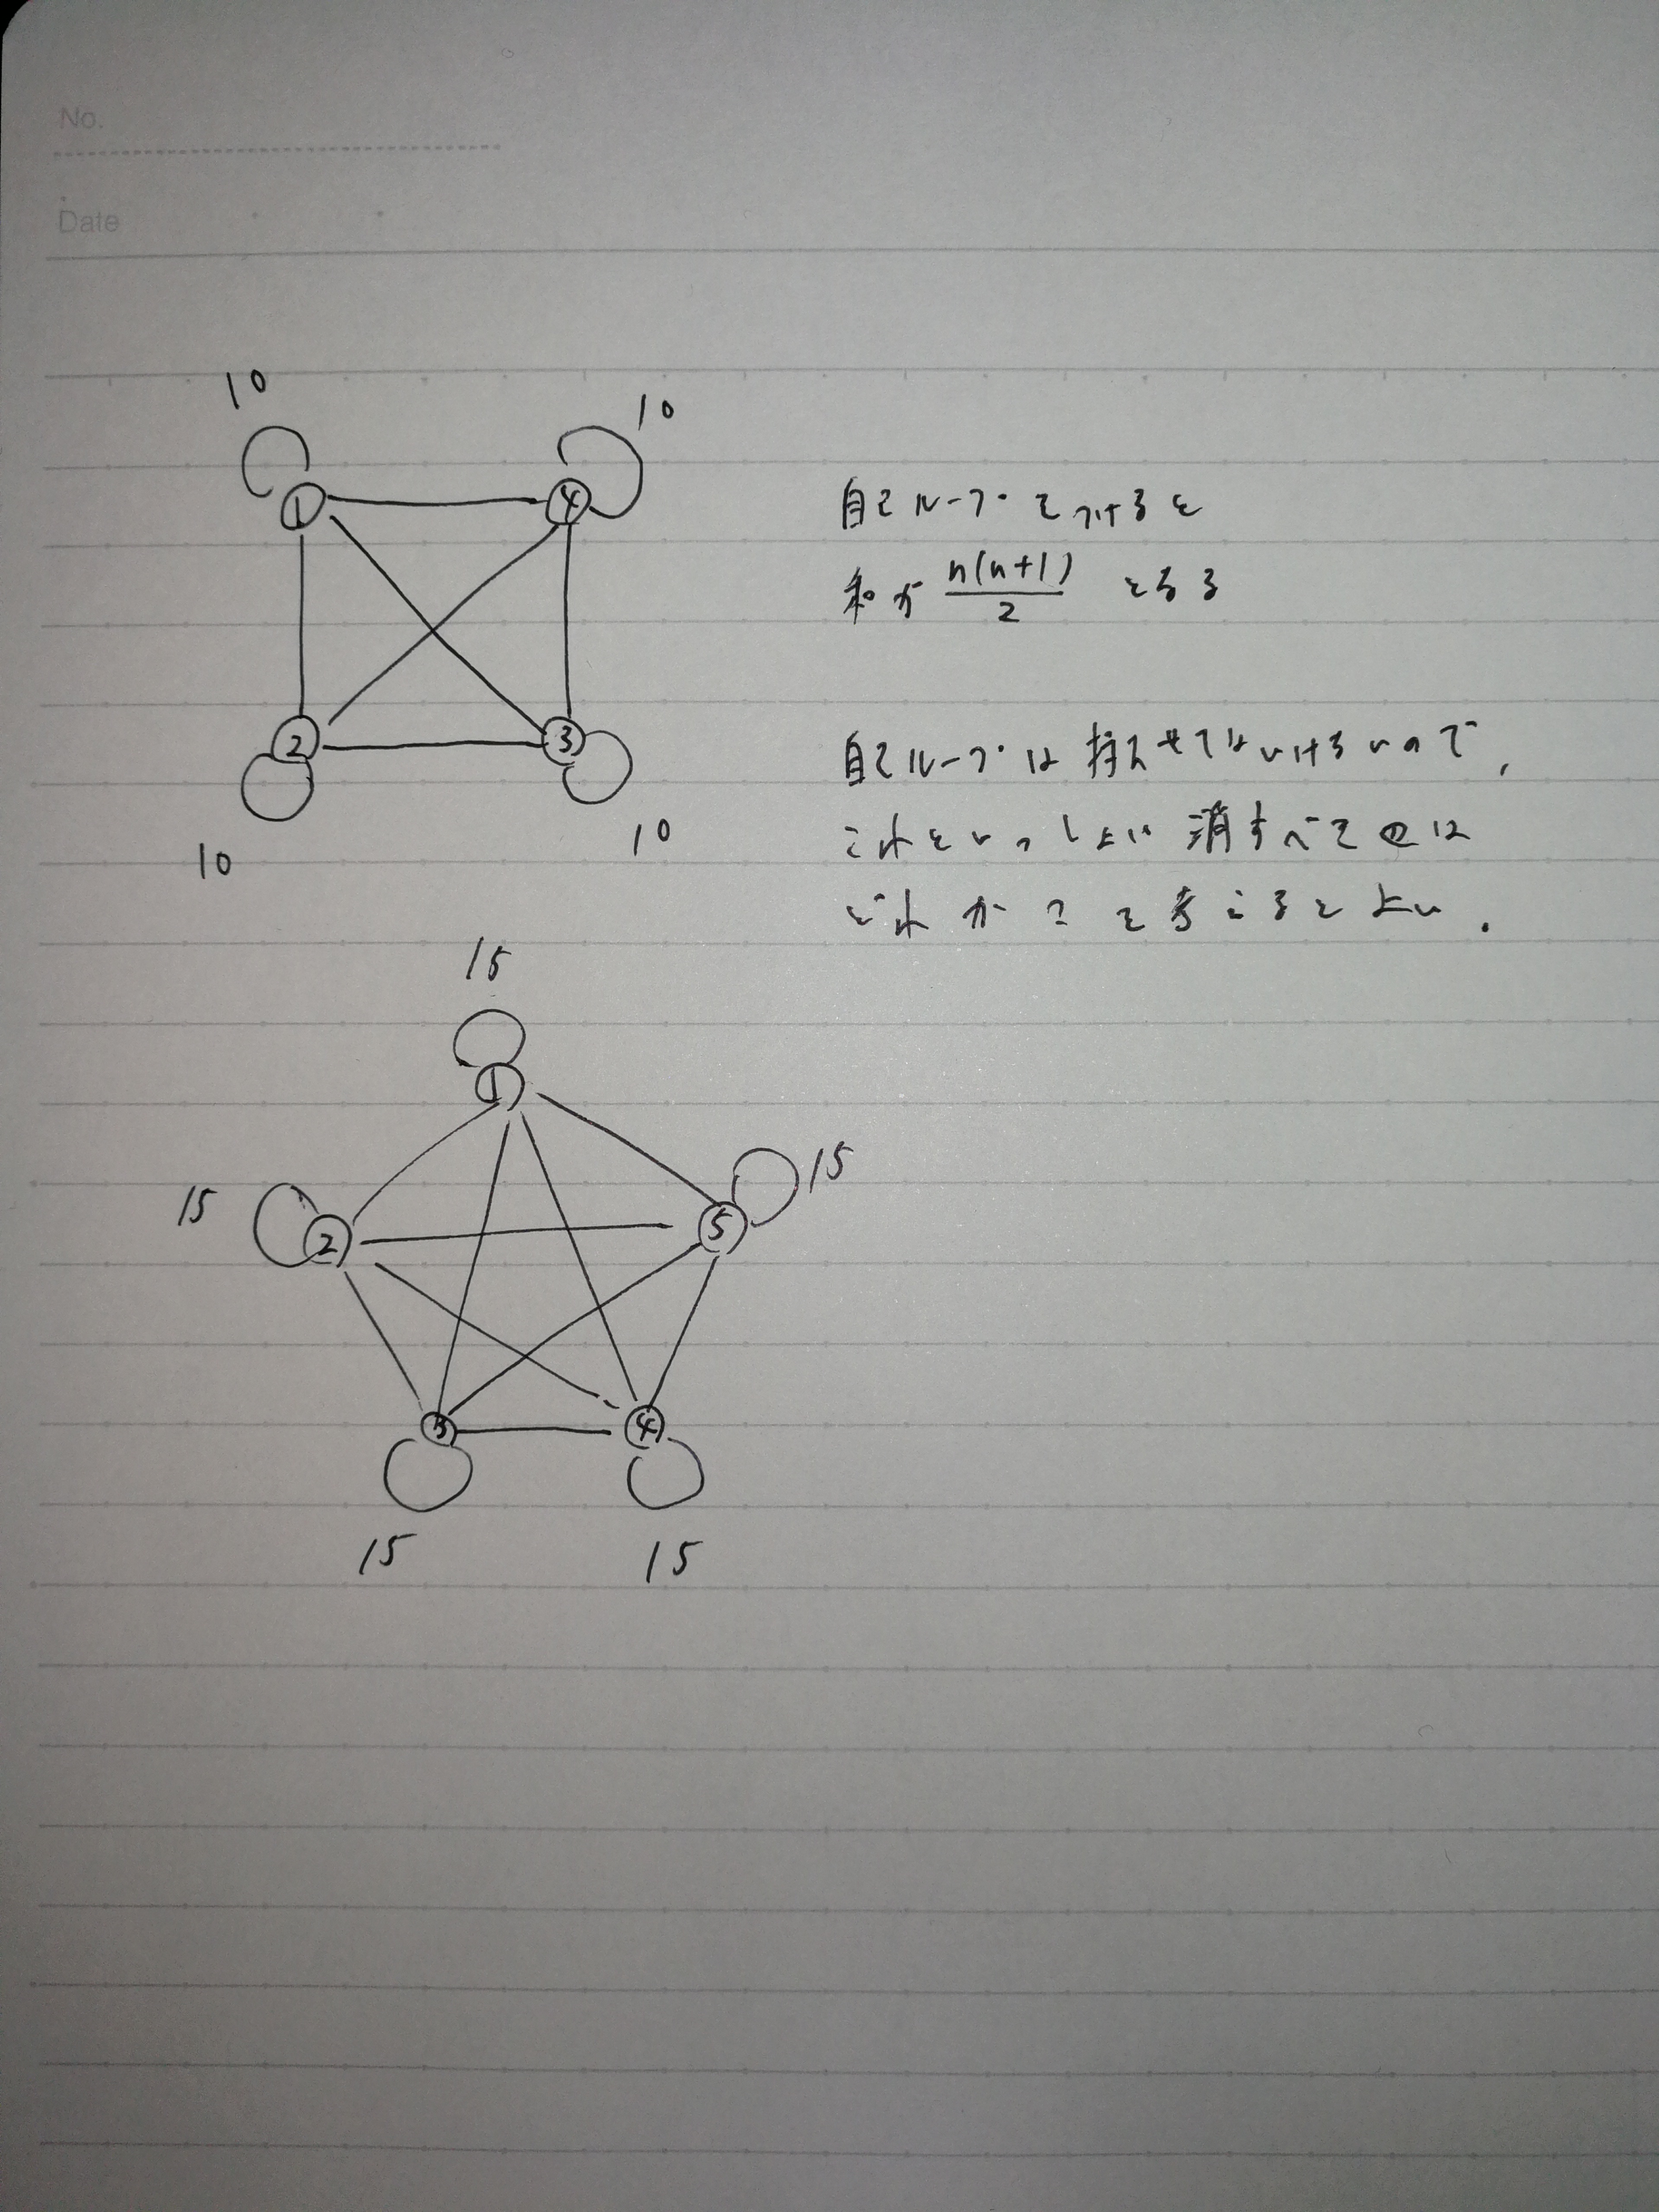 No.
Date
10
10
① ④
② ③
10
10
自己ループをつけると
和が n(n+1)/2 となる
自己ループは持たせてはいけないので,
これをいっしょに消すべき辺は
どれか?を考えるとよい.
15
①
15
⑤
15
②
③ ④
15 15